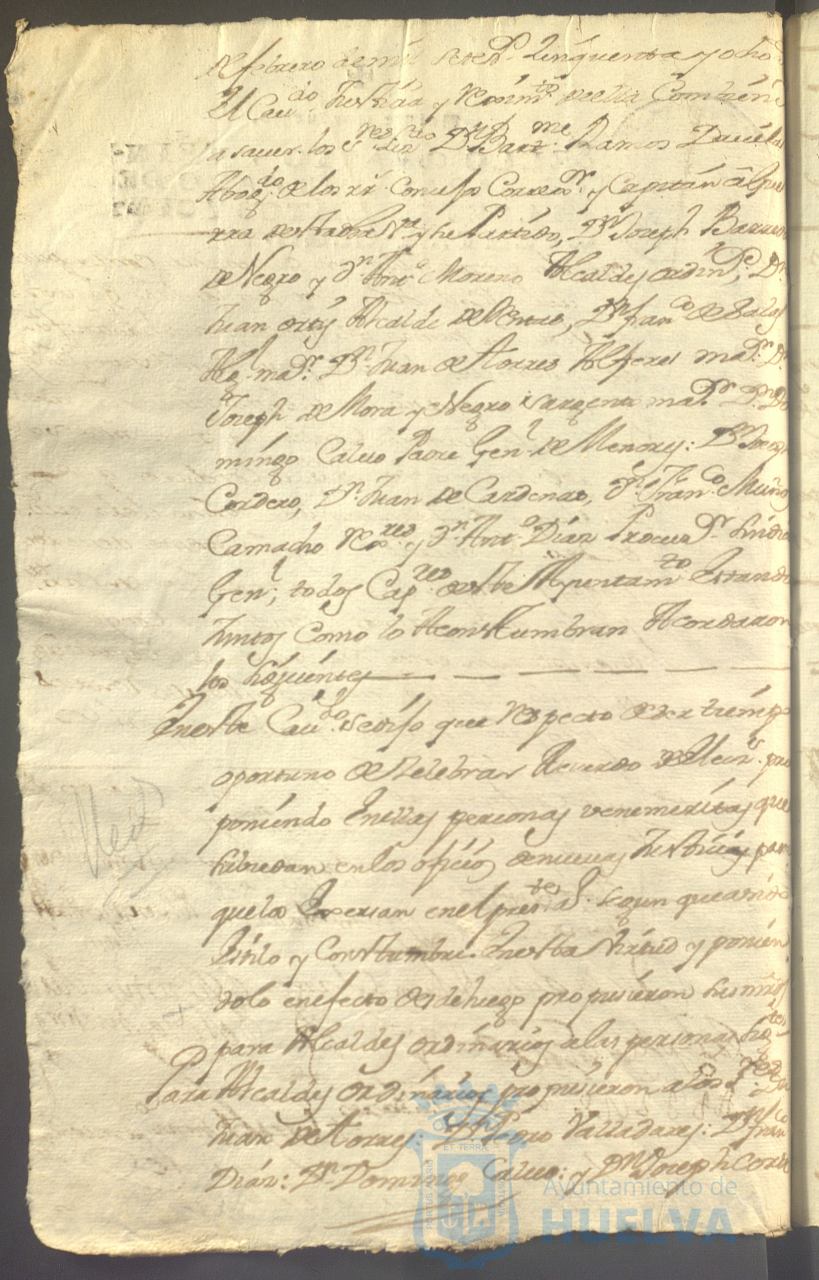 de febrero de mil setesᵒˢ Zinquenta y ocho
El Cauᵈᵒ Justizia y Reximᵗᵒ de ella Combiene
a sauer los Sʳᵉˢ Lizᵈᵒ Dⁿ Barᵐᵉ Ramos Dauila
Abogᵈᵒ de los Rˢ Consejos Corregʳ y Capitan a Gue
rra de esta Vᵃ y su Partido, Dⁿ Joseph Barrera
de Negro y Dⁿ Antᵒ Moreno Alcaldes ordinˢ, Dⁿ
Juan ortis Alcalde de Dⁿ Franᶜᵒ de
Algˡ maʳ Dⁿ Juan de Torres Alferes maʳ Dⁿ
Joseph de Mora y Negro sargento maʳ Dⁿ Do
mingo Caluo Padre Genˡ de Menores: Dⁿ Joseph
Cordero, Dⁿ Juan de Cardenas, Dⁿ Franᶜᵒ Muños
Camacho Rexʳᵉˢ y Dⁿ Antᵒ Dias Procuʳ sindico
Genˡ, todos Capʳᵉˢ de este Ayuntamᵗᵒ Estando
Juntos como lo Aconstumbran Acordaron
lo siguiente
En este Cauᵈᵒ se dijo que respecto de ser tiempo
oportuno de selebrar Acuerdo de Elecⁿ pro
poniendo En ellas personas venemeritas que
subsedan en los ofizios de nueuas Justizias para
que los Exersan en el presᵗᵉ a.ˢ segun que a sido
Estilo y Constumbre En esta virtud y ponien
dolo en efecto desde luego propusieron sus mrᵈˢ
para Alcaldes ordinarios a las personas sigᵗᵉˢ
Para Alcaldes ordinarios propusieron a los Sʳᵉˢ Dⁿ
Juan de Torres: Dⁿ Pedro Valladares: Dⁿ Franᶜᵒ
Dias: Dⁿ Domingo Caluo: y Dⁿ Joseph Corde
ET TERRAE
Ayuntamiento de
HUELVA